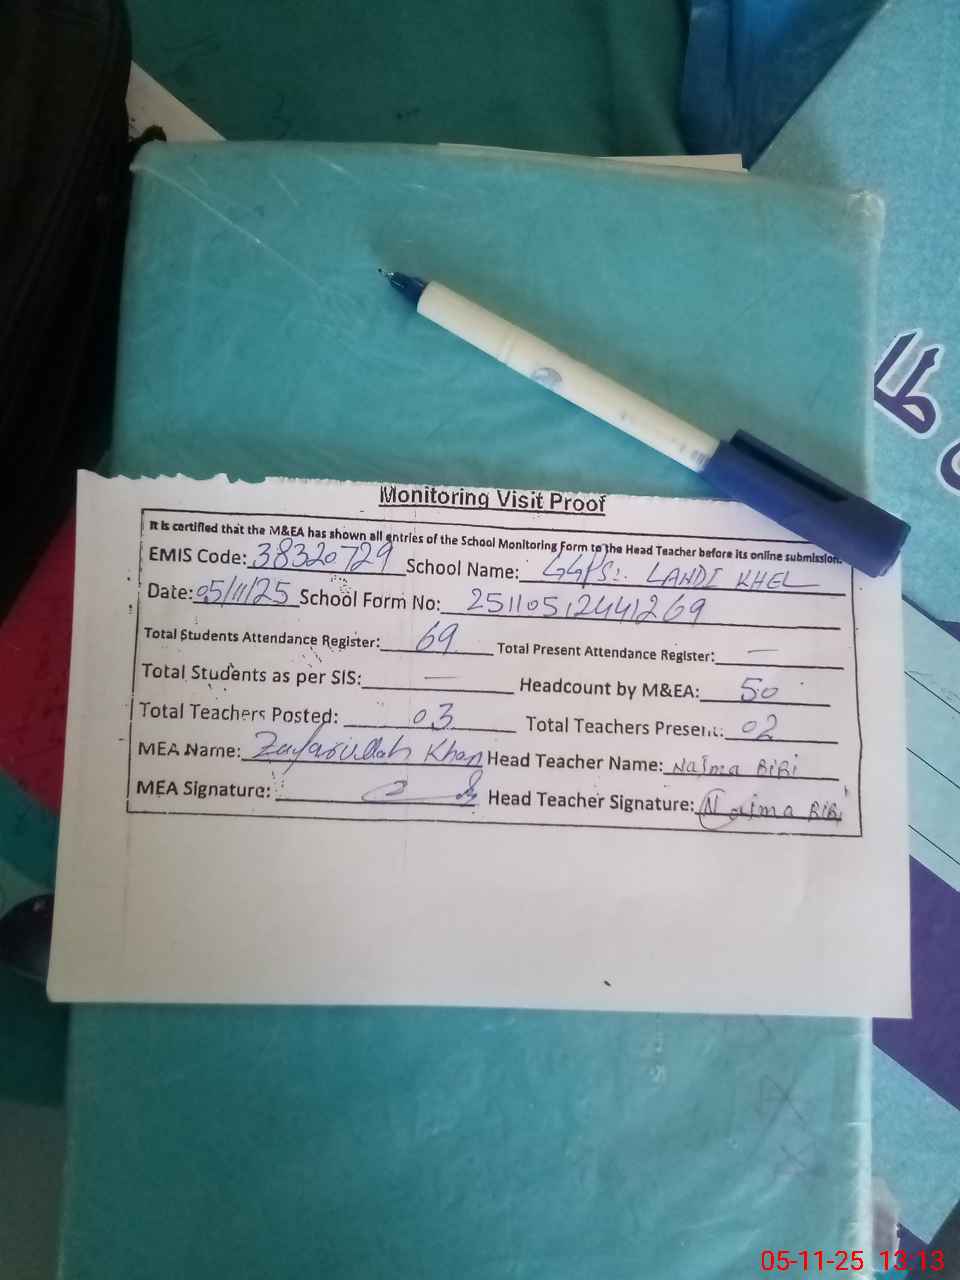 Monitoring Visit Proof
It is certified that the M&EA has shown all entries of the School Monitoring Form to the Head Teacher before its online submission.
EMIS Code: 38320729 School Name: GGPS: LANDI KHEL
Date: 05/11/25 School Form No: 25110512441269
Total Students Attendance Register: 69 Total Present Attendance Register: —
Total Students as per SIS: — Headcount by M&EA: 50
Total Teachers Posted: 03 Total Teachers Present: 02
MEA Name: Zafarullah Khan Head Teacher Name: Najma BiBi
MEA Signature: Head Teacher Signature: Najma BiBi
05-11-25 13:13